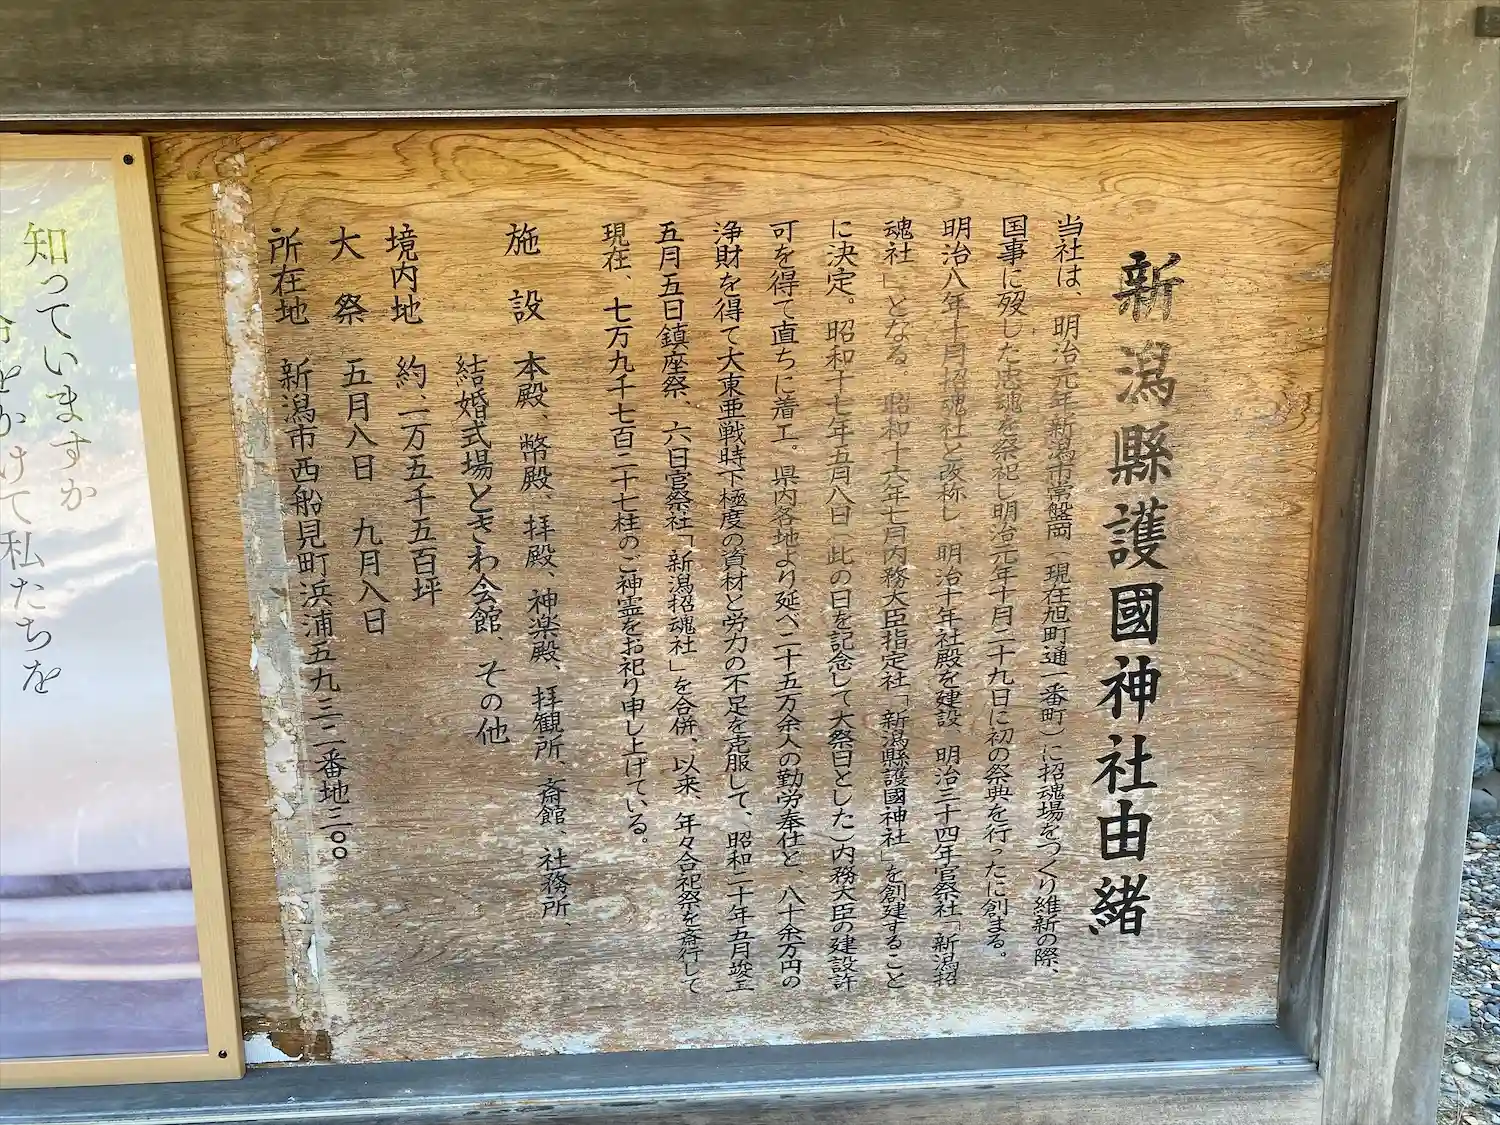 新潟縣護國神社由緒
当社は、明治元年新潟市常盤岡（現在旭町通一番町）に招魂場をつくり維新の際、
国事に殁した忠魂を祭祀し明治元年十月二十九日に初の祭典を行ったに創まる。
明治八年十月招魂社と改称し、明治十年社殿を建設、明治三十四年官祭社「新潟招
魂社」となる。昭和十六年七月内務大臣指定社「新潟縣護國神社」を創建すること
に決定。昭和十七年五月八日（此の日を記念して大祭日とした）内務大臣の建設許
可を得て直ちに着工。県内各地より延べ二十五万余人の勤労奉仕と、八十余万円の
浄財を得て大東亜戦時下極度の資材と労力の不足を克服して、昭和二十年五月竣工
五月五日鎮座祭、六日官祭社「新潟招魂社」を合併、以来、年々合祀祭を斎行して
現在、七万九千七百二十七柱のご神霊をお祀り申し上げている。
施設 本殿、幣殿、拝殿、神楽殿、拝観所、斎館、社務所、
結婚式場ときわ会館、その他
境内地 約、一万五千五百坪
大祭 五月八日 九月八日
所在地 新潟市西船見町浜浦五九三二番地三〇〇
知っていますか
をかけて私たちを